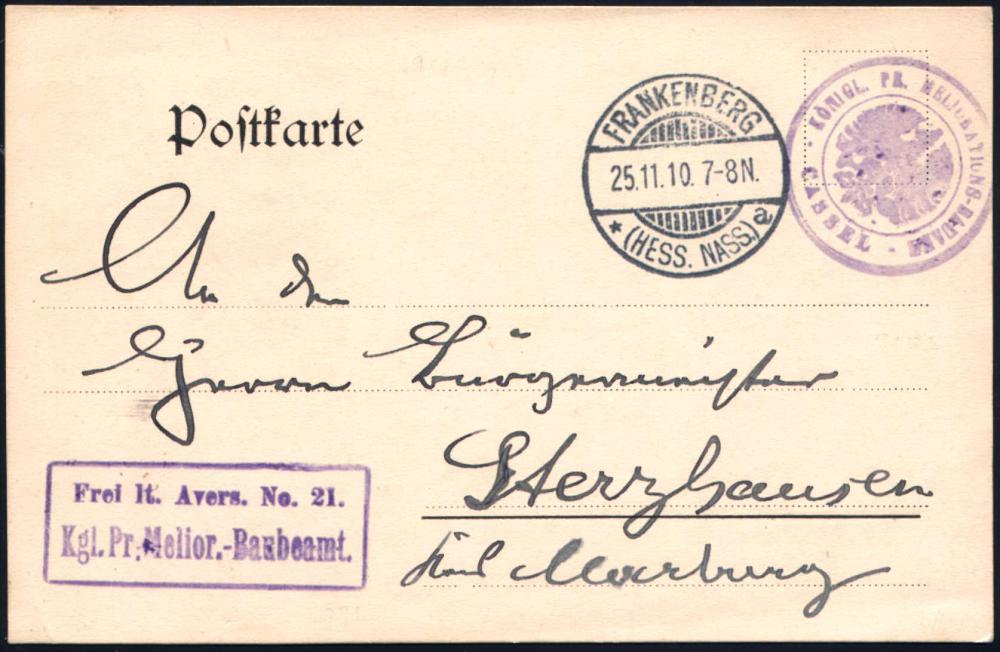 Postkarte
FRANKENBERG
25.11.10. 7-8N.
* (HESS. NASS.) a
KÖNIGL. PR. MELIORATIONS-BAUAMT
- CASSEL -
An den
Herrn Bürgermeister
Sterzhausen
Kreis Marburg
Frei lt. Avers. No. 21.
Kgl. Pr. Melior.-Baubeamt.